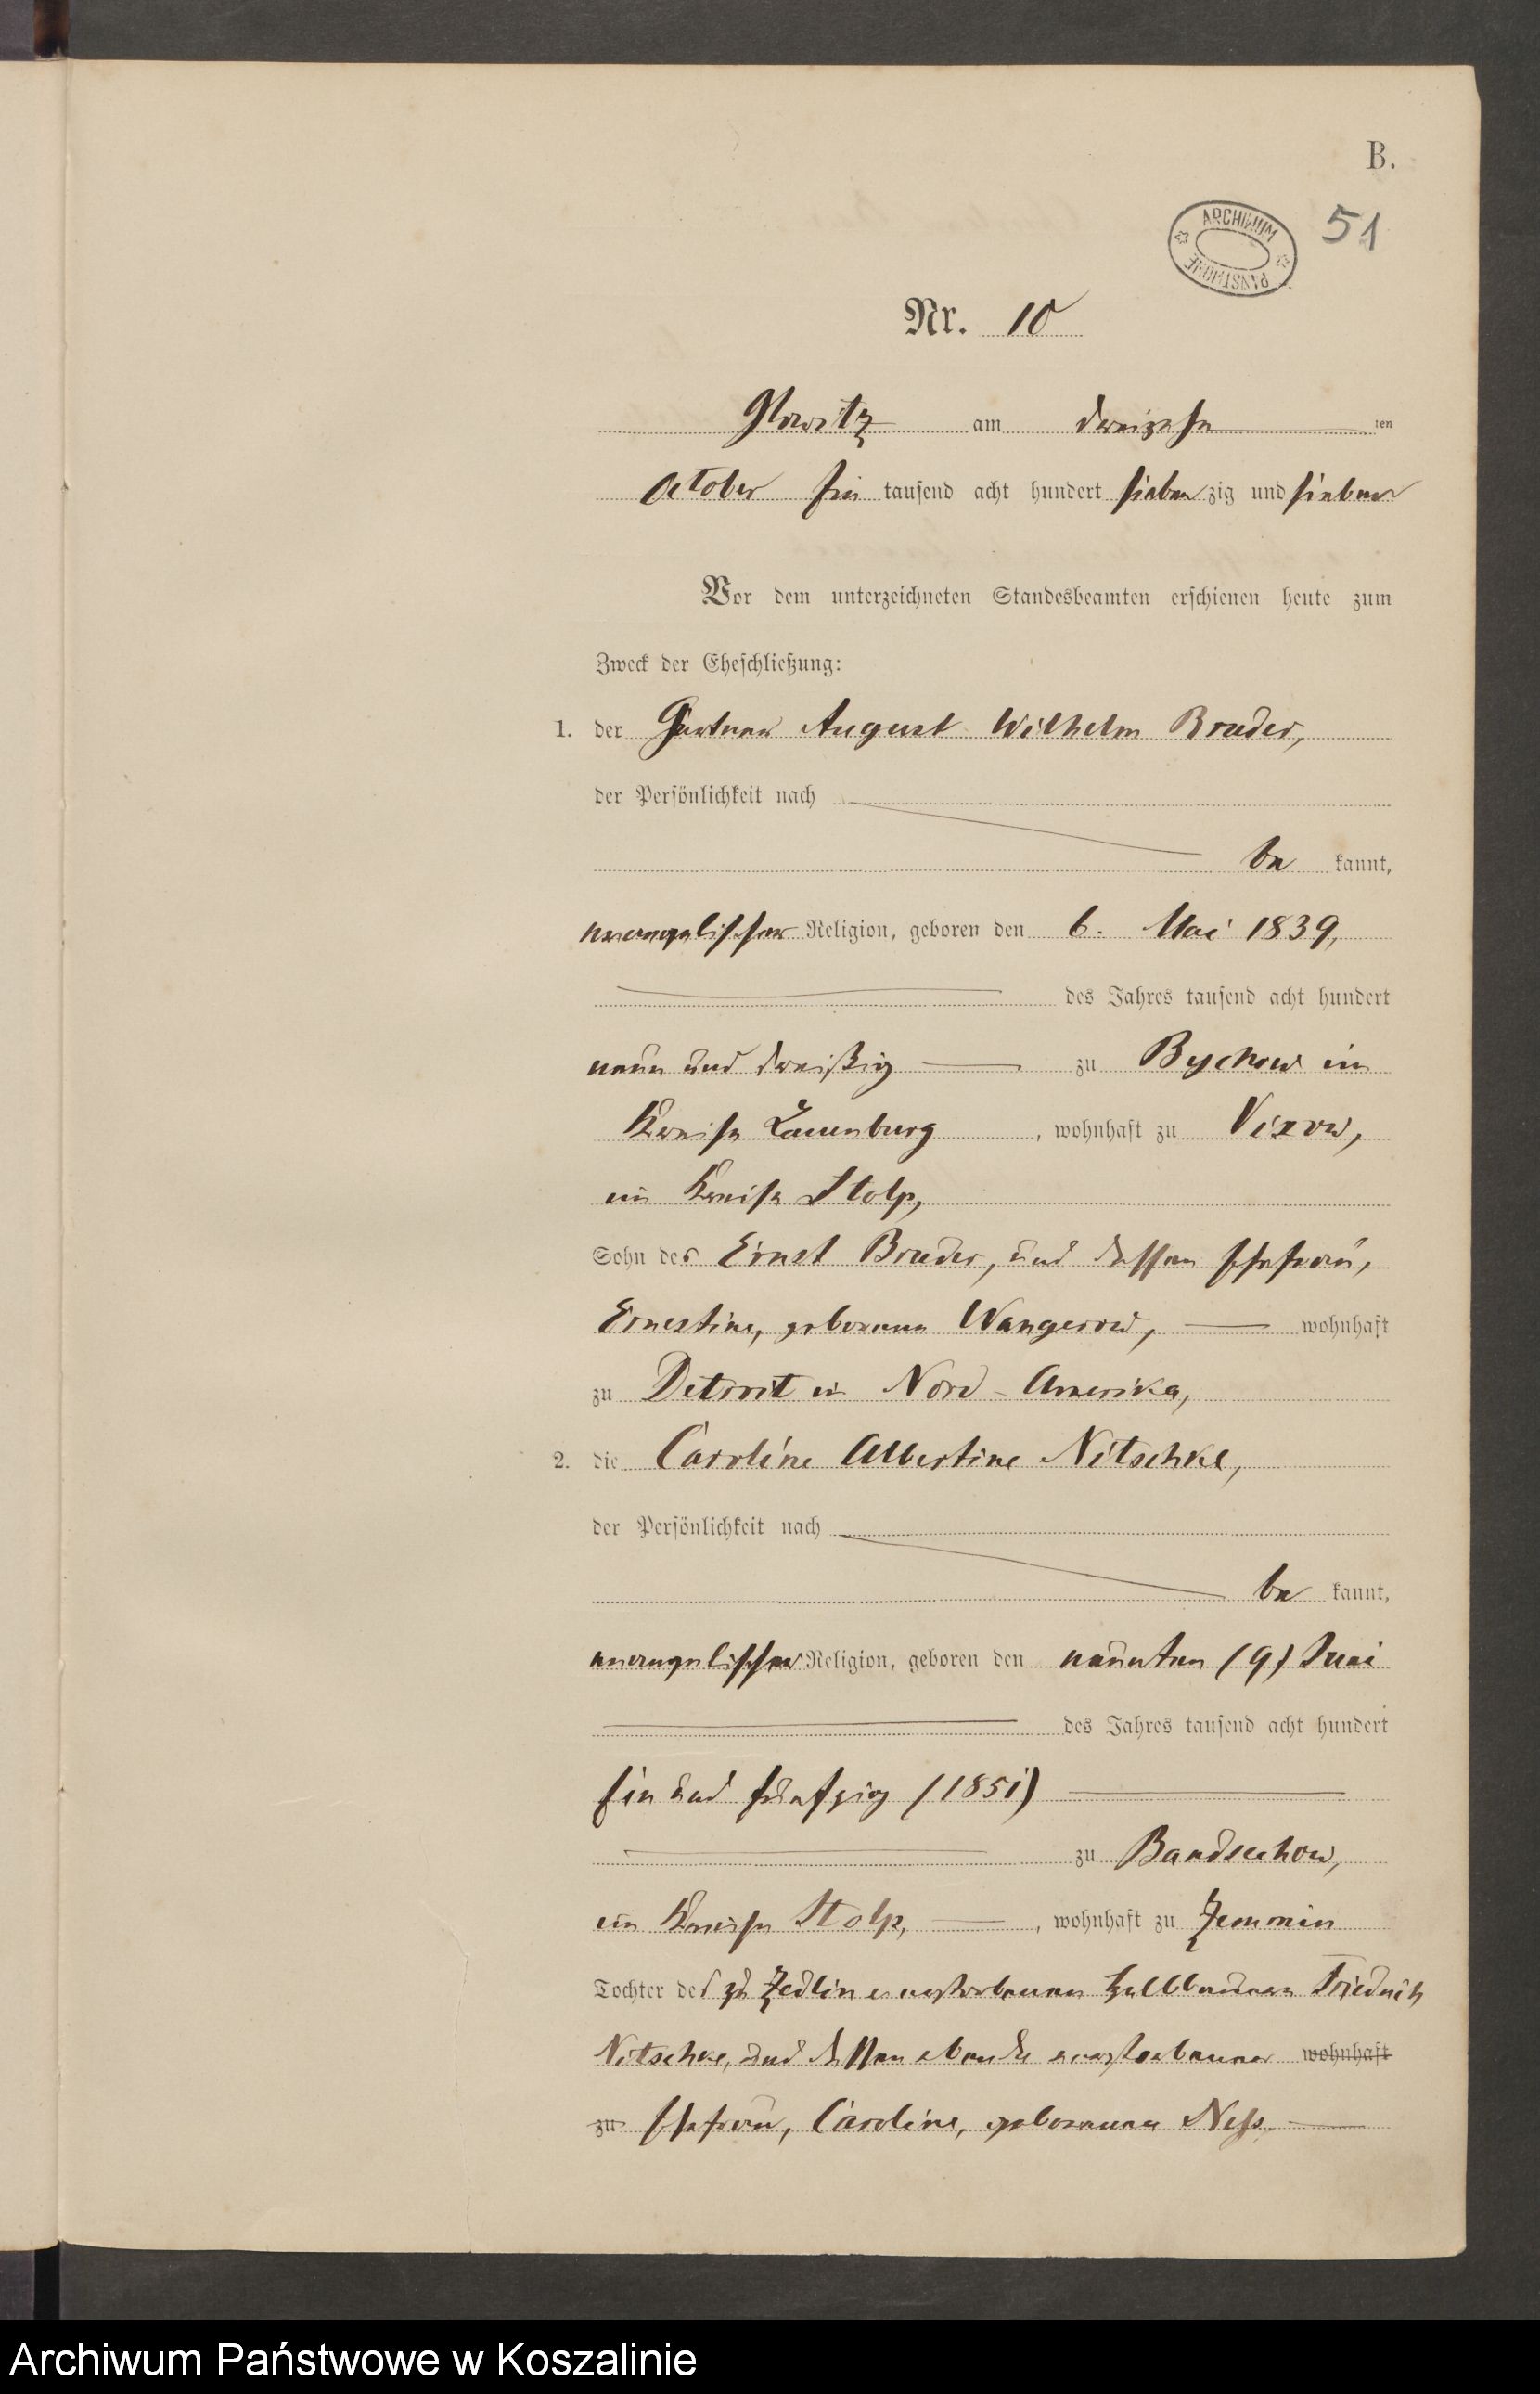 B.
ARCHIWUM PAŃSTWOWE
51
Nr. 10
Glowitz am dreizehn ten
October Ein tausend acht hundert sieben zig und sieben
Vor dem unterzeichneten Standesbeamten erschienen heute zum
Zweck der Eheschließung:
1. der Gärtner August Wilhelm Bruder,
der Persönlichkeit nach
be kannt,
evangelischer Religion, geboren den 6. Mai 1839,
des Jahres tausend acht hundert
neun und dreißig zu Bychow im
Kreise Lauenburg, wohnhaft zu Vixow,
im Kreise Stolp,
Sohn des Ernst Bruder, und dessen Ehefrau,
Ernestine, geborenen Wangerow, wohnhaft
zu Detroit in Nord-Amerika,
2. die Caroline Albertine Nitschke,
der Persönlichkeit nach
be kannt,
evangelischer Religion, geboren den neunten (9) Juni
des Jahres tausend acht hundert
Ein und fünfzig (1851)
zu Bandsechow,
im Kreise Stolp, wohnhaft zu Zemmin
Tochter des zu Zedlin verstorbenen Halbbauern Friedrich
Nitschke, und dessen ebenda verstorbener wohnhaft
zu Ehefrau, Caroline, geborenen Ness.
Archiwum Państwowe w Koszalinie